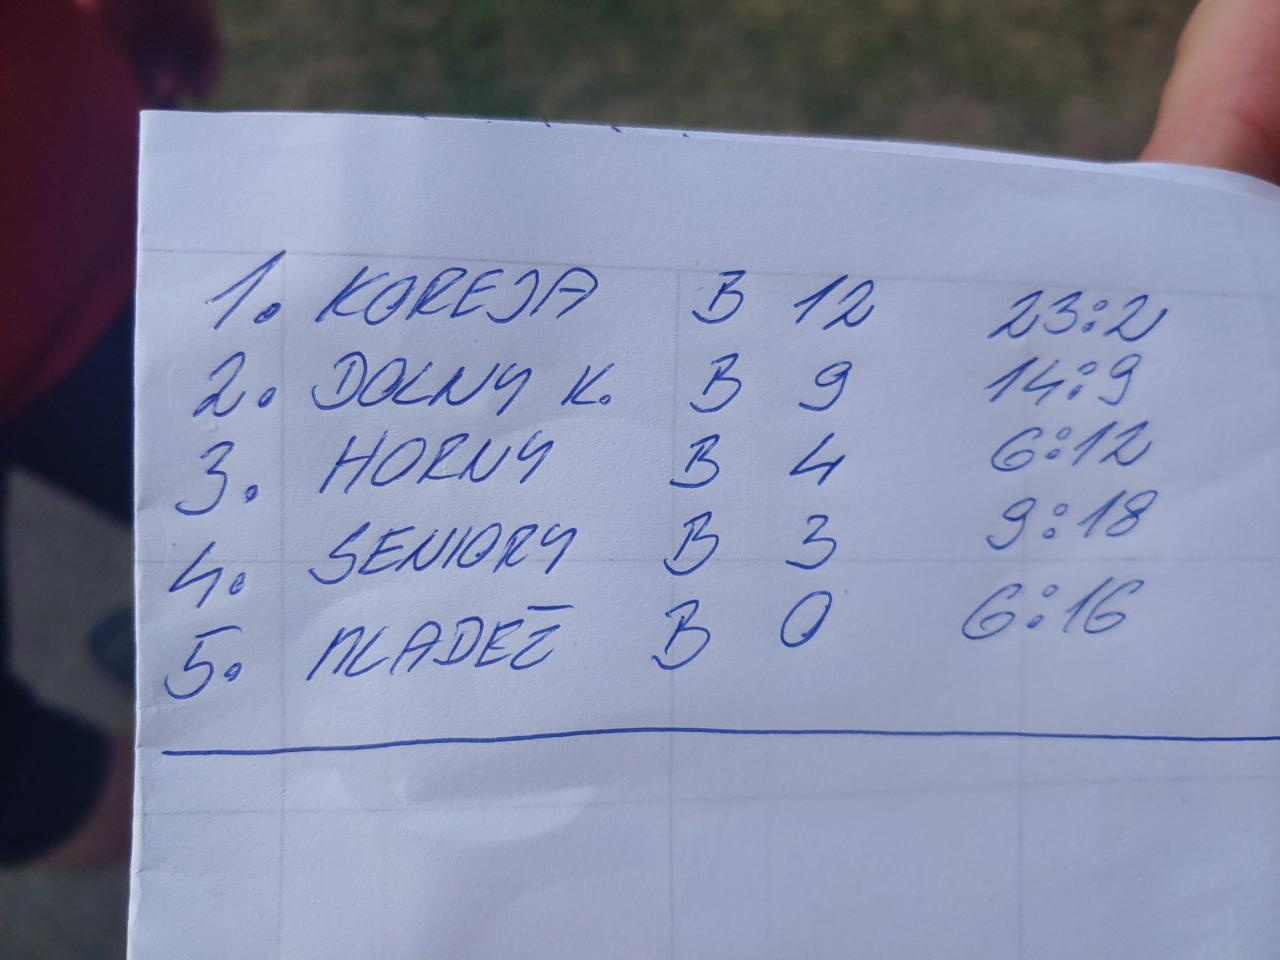 1. KOREJA B 12 23:2
2. DOLNY K. B 9 14:9
3. HORNY B 4 6:12
4. SENIORY B 3 9:18
5. MLADEŽ B 0 6:16